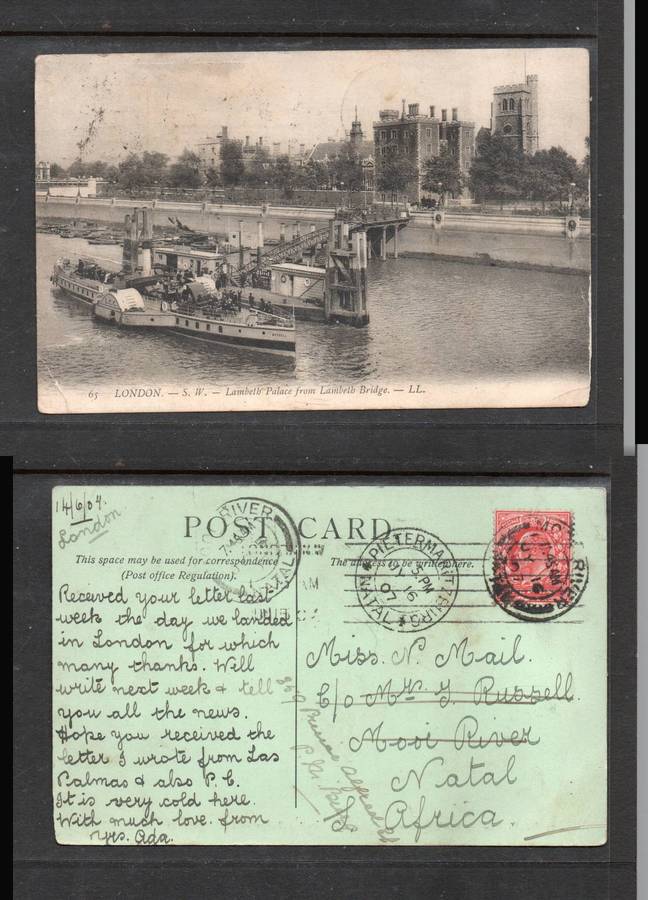 65 LONDON. — S. W. — Lambeth Palace from Lambeth Bridge. — LL.
14/6/07.
London
POST CARD
This space may be used for correspondence
(Post office Regulation).
The address to be written here.
Received your letter last
week the day we landed
in London for which
many thanks. Will
write next week & tell
you all the news.
Hope you received the
letter I wrote from Las
Palmas & also P.C.
It is very cold here.
With much love from
Yrs. Ada.
RIVER
NATAL
PIETERMARITZBURG
PM
JY 16
07
NATAL
MOOI RIVER
JY 16
07
Miss. N. Mail.
C/o Mrs J. Russell.
Mooi River
Natal
Africa.